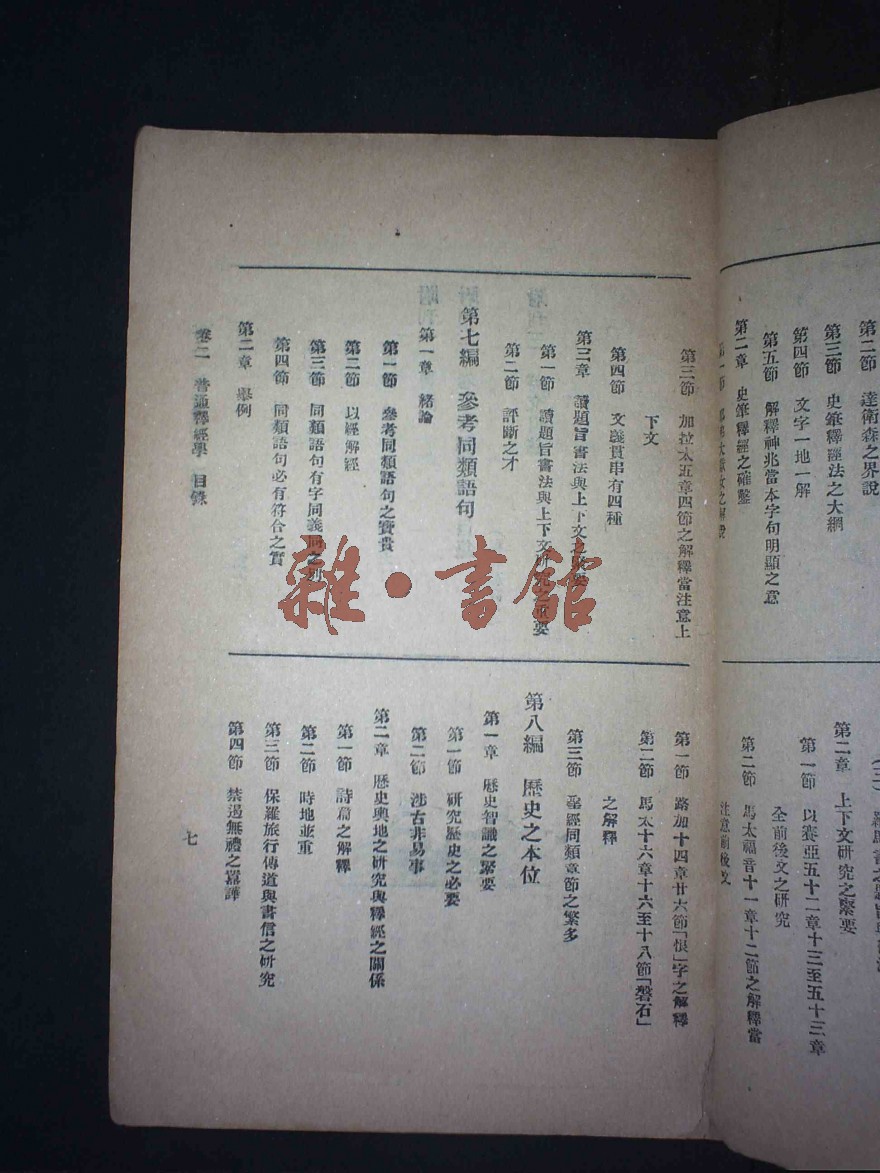 第二節 達衞森之界說
第三節 史筆釋經法之大綱
第四節 文字一地一解
第五節 解釋神兆當本字句明顯之意
第二章 史筆釋經之確鑿
第二章 上下文研究之緊要
第一節 以賽亞五十二章十三至五十三章
全前後文之研究
第二節 馬太福音十一章十二節之解釋當
注意前後文
第三節 加拉太五章四節之解釋當注意上
下文
第四節 文義貫串有四種
第三章 讀題旨書法與上下文之
第一節 讀題旨書法與上下文研究之要
第二節 評斷之才
第七編 參考同類語句
第一章 緒論
第一節 參考同類語句之寶貴
第二節 以經解經
第三節 同類語句有字同義同之別
第四節 同類語句必有符合之實
第二章 舉例
第一節 路加十四章廿六節「恨」字之解釋
第二節 馬太十六章十六至十八節「磐石」
之解釋
第三節 聖經同類章節之繁多
第八編 歷史之本位
第一章 歷史智識之緊要
第一節 研究歷史之必要
第二節 涉古非易事
第二章 歷史輿地之研究與釋經之關係
第一節 詩篇之解釋
第二節 時地並重
第三節 保羅旅行傳道與書信之研究
第四節 禁遏無禮之囂譁
卷二 普通釋經學 目錄
七
雜·書館